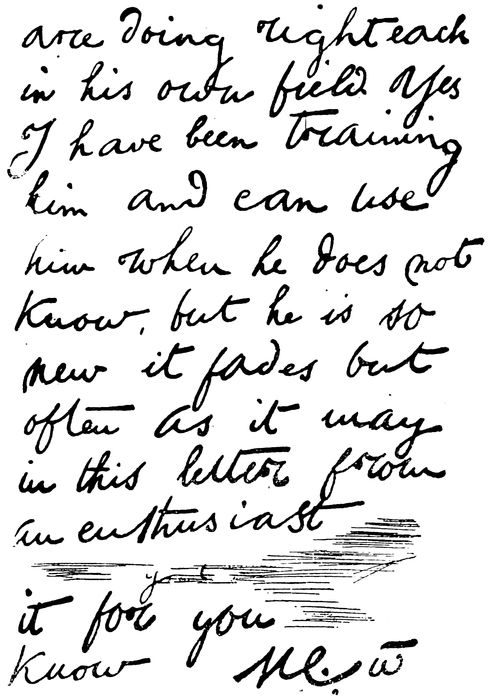 are doing right each
in his own field Yes
I have been training
him and can use
him when he does not
Know, but he is so
new it fades but
often as it may
in this letter from
an enthusiast
it for you
Know